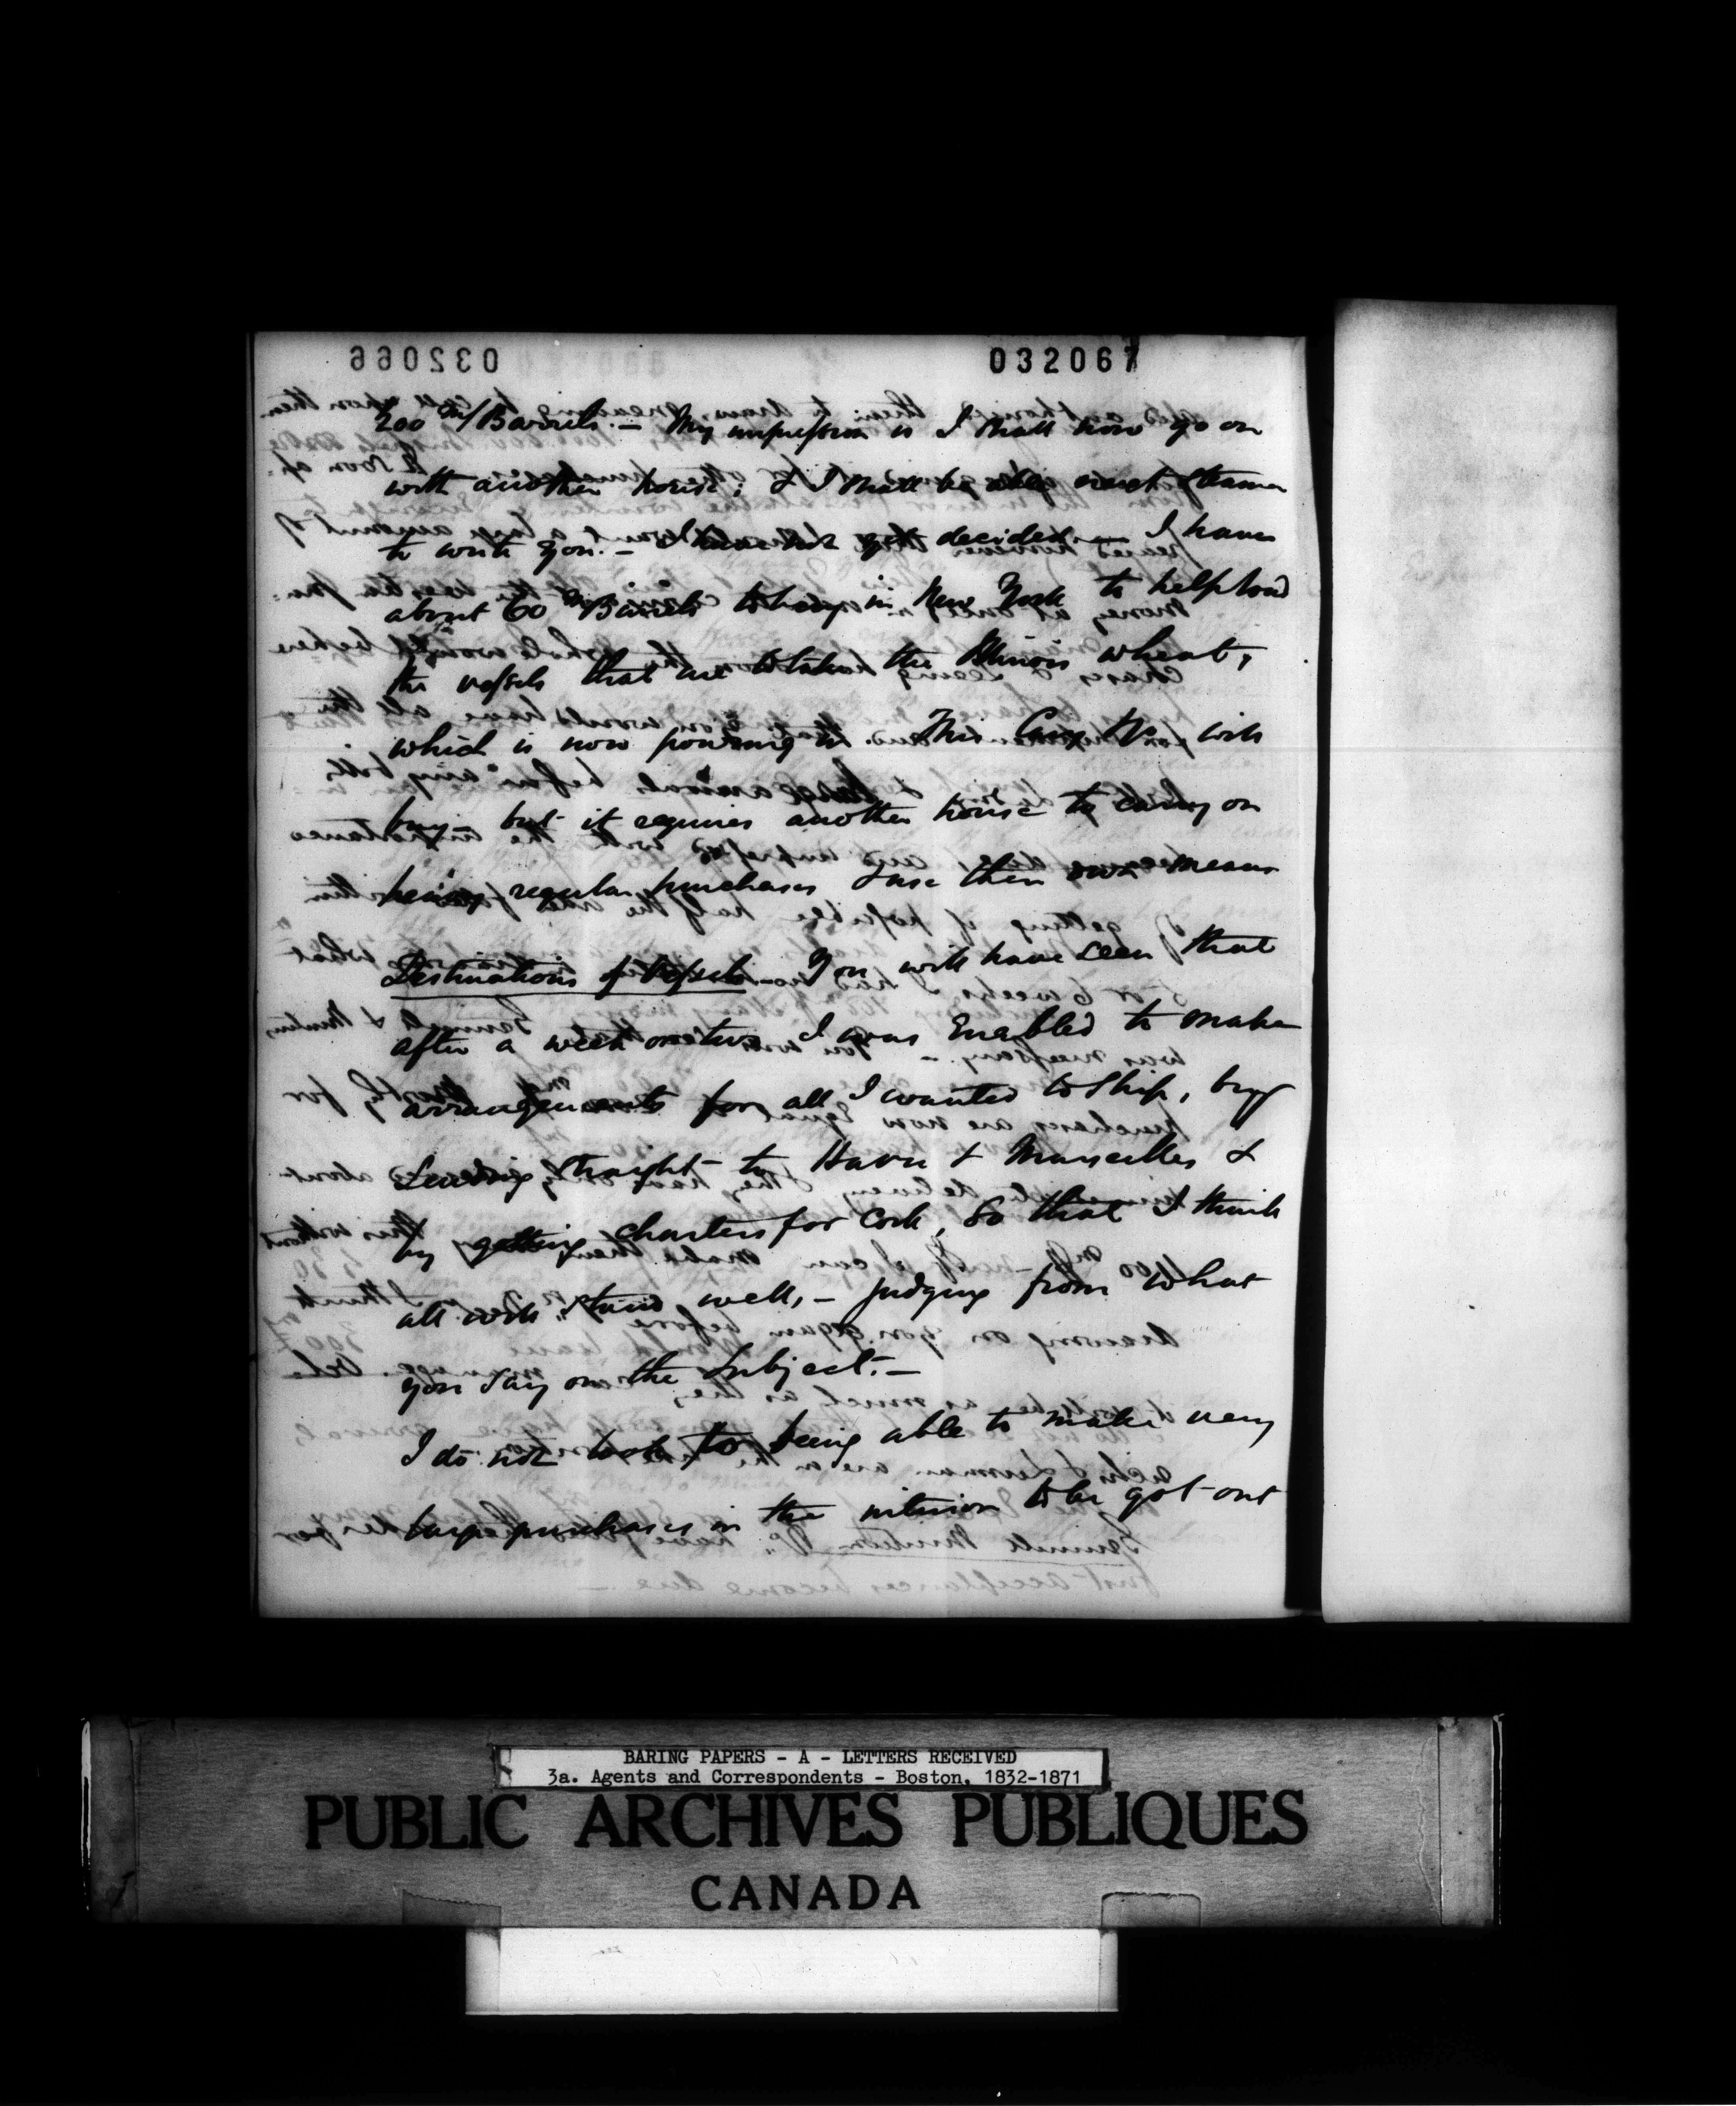 032067
200 m/ Barrels. — My impression is I shall now go on
with another house; & I shall be able next steamer
to write you. — I have not yet decided — I have
about 60 m/ Barrels to buy in New York to help load
the vessels that are to take the Illinois wheat,
which is now pouring in. This will
buy — but it requires another house to carry on
heavy regular purchases & use their own means
Destinations of Vessels — You will have seen that
after a week or two I was Enabled to make
arrangements for all I wanted to ship, by
sending straight to Havre & Marseilles &
by getting charters for Cork, so that I think
all will stand well, — judging from what
you say on the subject. —
I do not look to being able to make very
large purchases in the interior to be got out
BARING PAPERS - A - LETTERS RECEIVED
3a. Agents and Correspondents - Boston, 1832-1871
PUBLIC ARCHIVES PUBLIQUES
CANADA